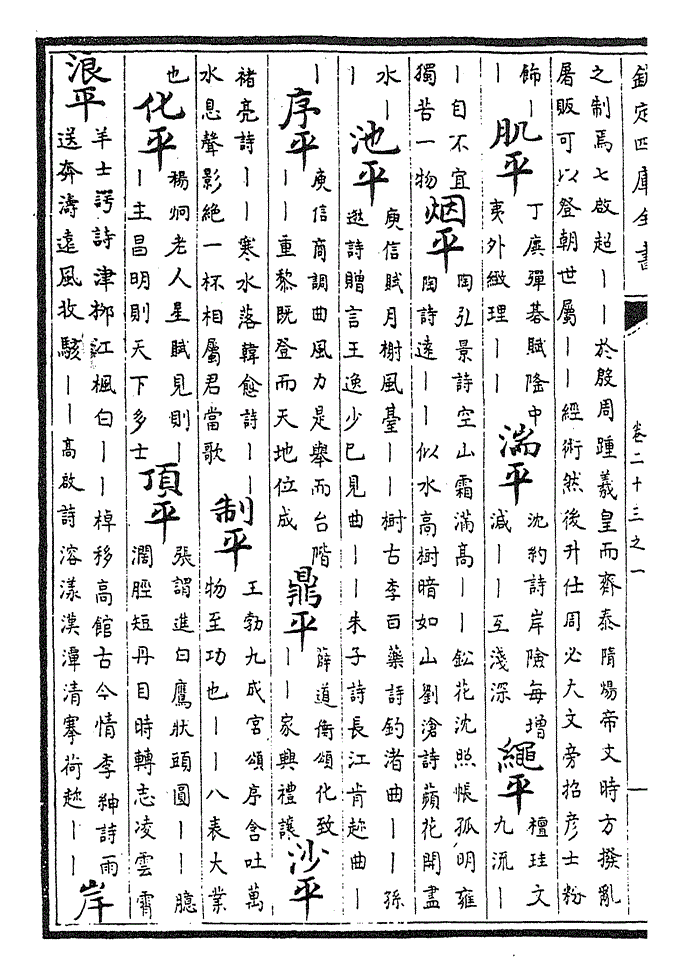 欽定四庫全書 卷二十三之一 一
之制焉七啟超丨丨於殷周踵羲皇而齊泰隋煬帝文時方撥亂
屠販可以登朝世屬丨丨經術然後升仕周必大文旁招彦士粉
飾丨丨肌平丁廙彈碁賦隆中夷外緻理丨丨湍平沈約詩岸險每增減丨丨互淺深繩平檀珪文九流丨
丨自不宜獨苦一物烟平陶弘景詩空山霜滿高丨丨鈆花沈照帳孤明雍陶詩遠丨丨似水高樹暗如山劉滄詩蘋花開盡
水丨丨池平庾信賦月榭風臺丨丨樹古李百藥詩釣渚曲丨丨孫逖詩贈言王逸少已見曲丨丨朱子詩長江肯趂曲丨
丨序平庾信商調曲風力是舉而台階丨丨重黎既登而天地位成鼎平薛道衡頌化致丨丨家興禮讓沙平
褚亮詩丨丨寒水落韓愈詩丨丨水息聲影絶一杯相屬君當歌制平王勃九成宮頌序含吐萬物至功也丨丨八表大業
也化平楊炯老人星賦見則丨丨主昌明則天下多士頂平張謂進白鷹狀頭圓丨丨臆濶脛短丹目時轉志凌雲霄
浪平羊士諤詩津柳江楓白丨丨棹移高館古今情李紳詩雨送奔濤遠風收駭丨丨高啟詩溶漾漢潭清搴荷趂丨丨岸